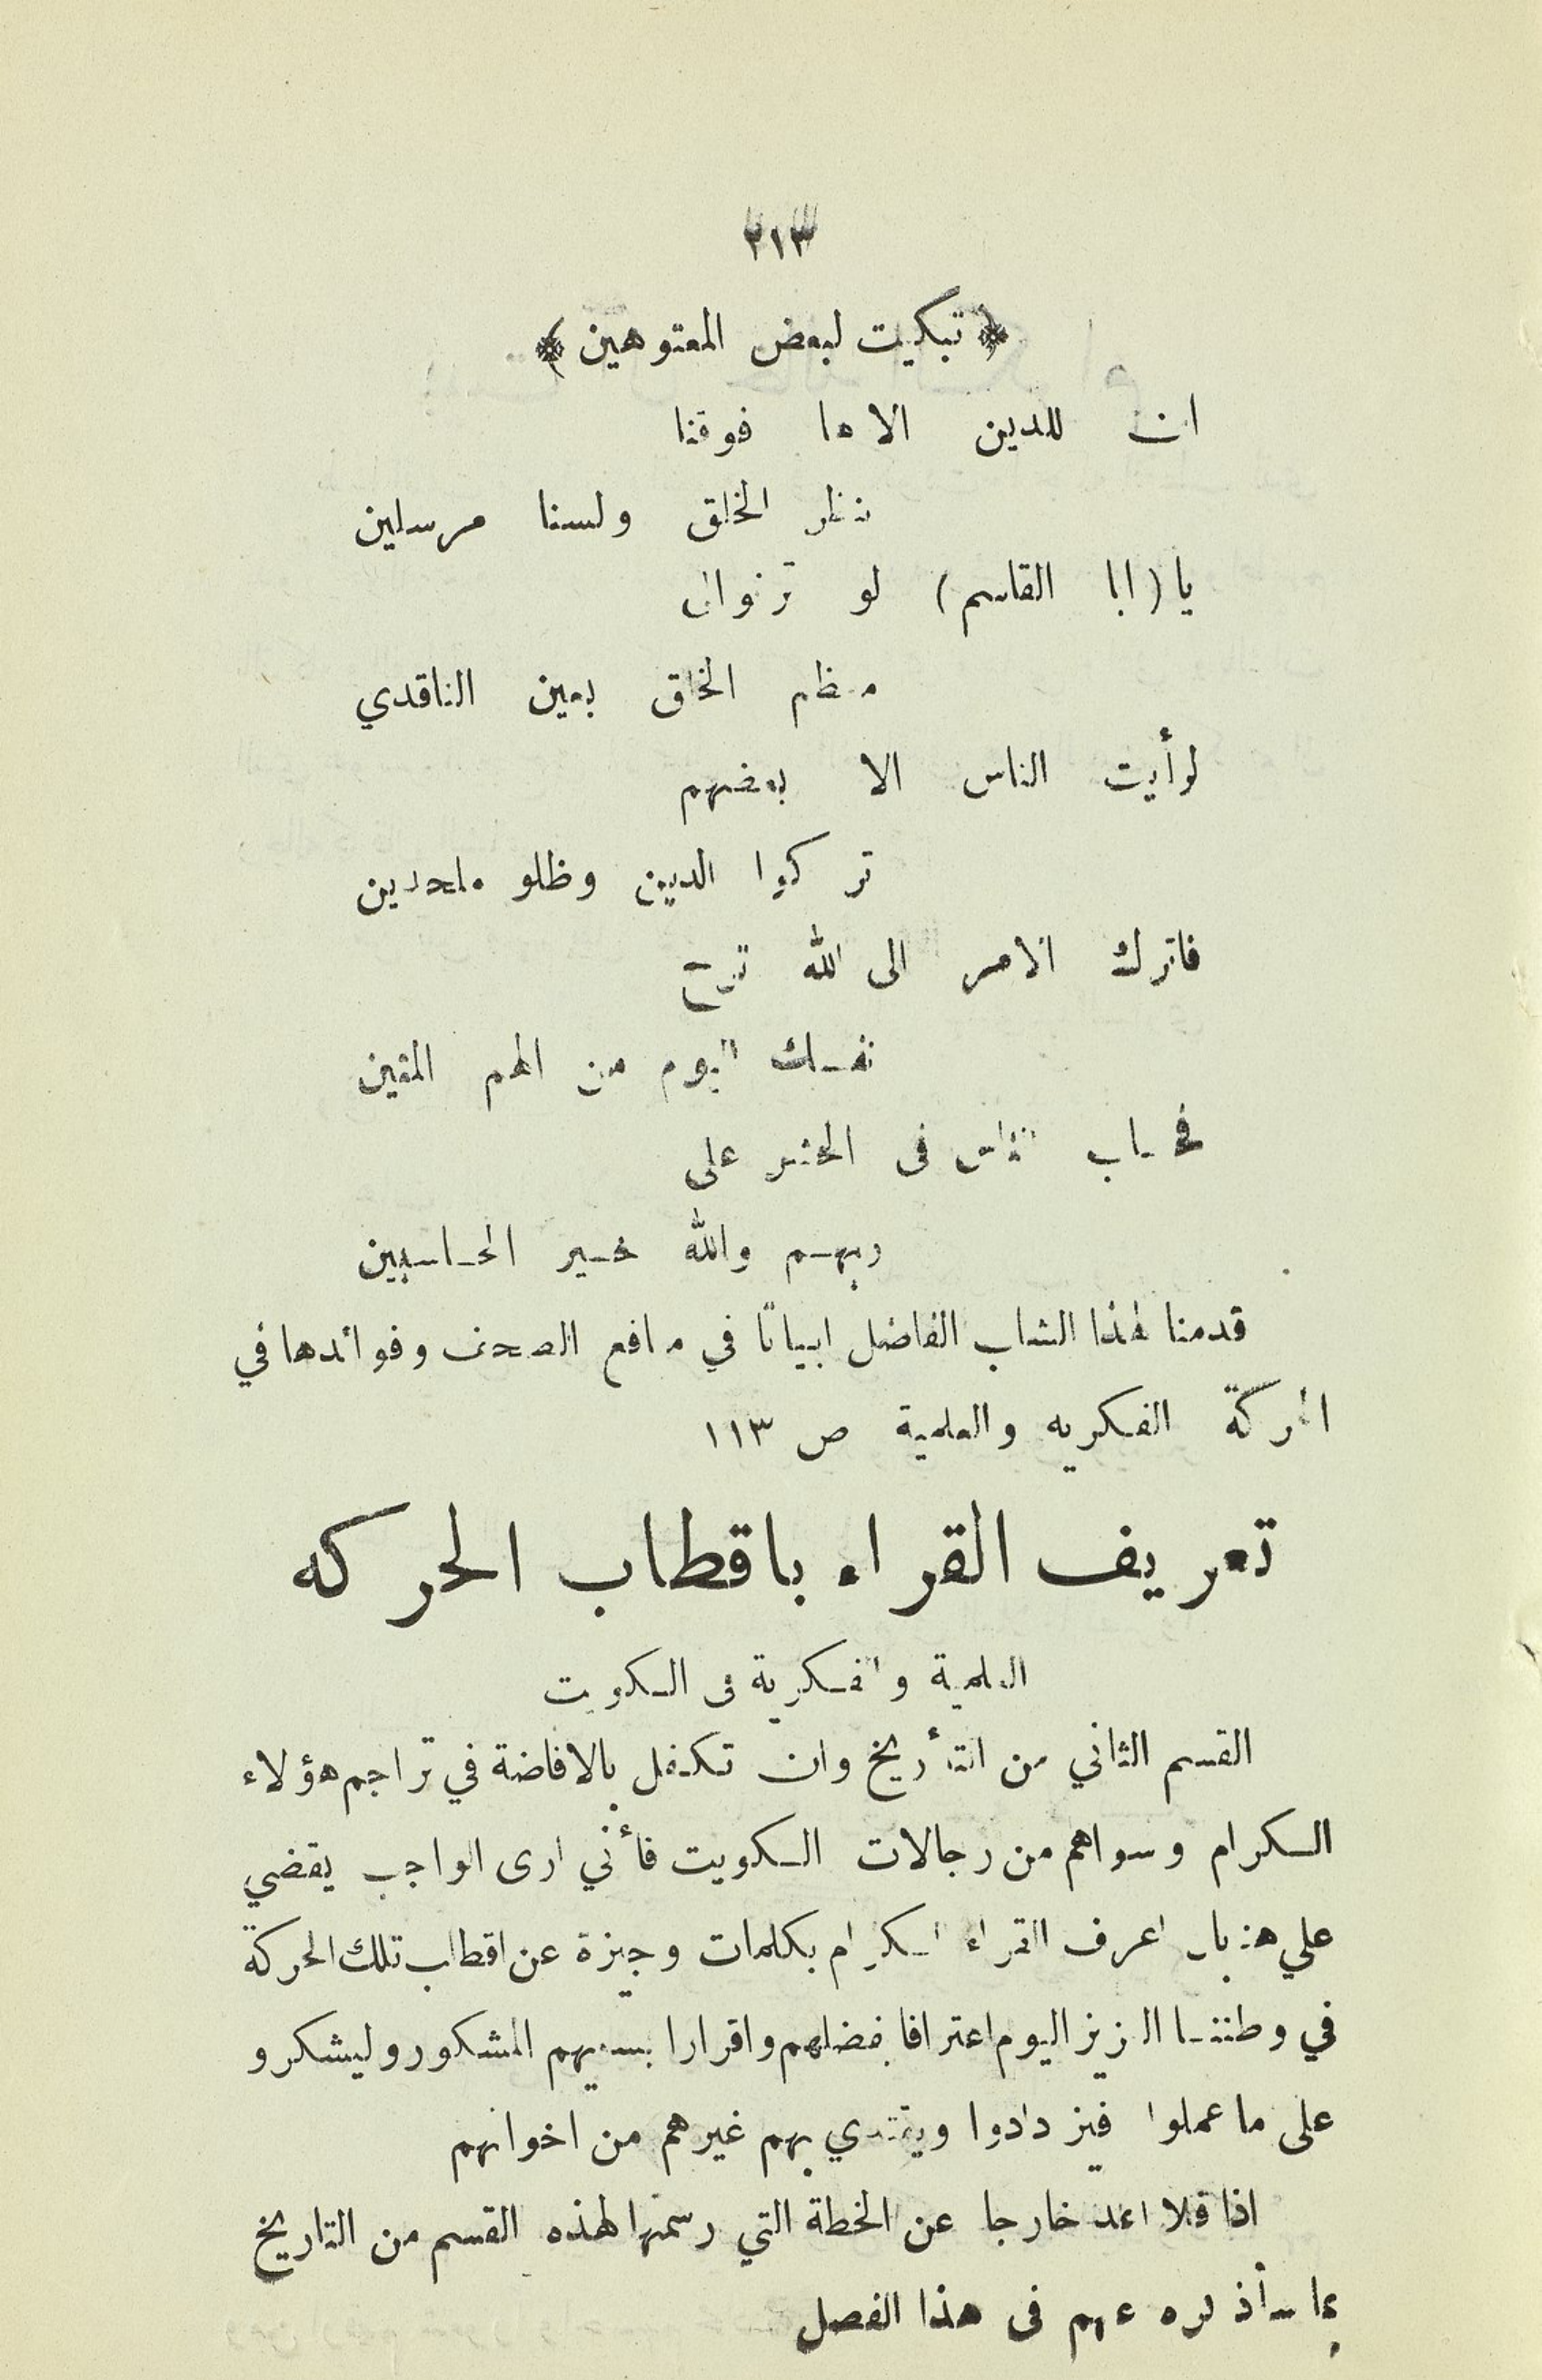 ٢١٣
﴿ تبكيت لبعض المعتوهين ﴾
ان للدين الاها فوقنا
نظر الخلق ولسنا مرسلين
يا (ابا القاسم) لو ترنوالى
معظم الخلق بعين الناقدي
لرأيت الناس الا بعضهم
تركوا الدين وظلو ملحدين
فاترك الامر الى الله ترح
نفسك اليوم من الهم المقين
فحساب الناس فى الحشر على
ربهم والله خير الحاسبين
قدمنا لهذا الشاب الفاضل ابياتا في منافع الصحف وفوائدها في
الحركة الفكريه والعلمية ص ١١٣
تعريف القراء باقطاب الحركه
العلمية والفكرية فى الكويت
القسم الثاني من التأريخ وان تكفل بالافاضة في تراجم هؤلاء
الكرام وسواهم من رجالات الكويت فأني ارى الواجب يقضي
علي هنا بان اعرف القراء الكرام بكلمات وجيزة عن اقطاب تلك الحركة
في وطننا العزيز اليوم اعترافا بفضلهم واقرارا بسعيهم المشكور وليشكرو
على ما عملوا فيزدادوا ويقتدي بهم غيرهم من اخوانهم
اذا فلا اعد خارجا عن الخطة التي رسمتها لهذه القسم من التاريخ
بما سأذكره عنهم فى هذا الفصل